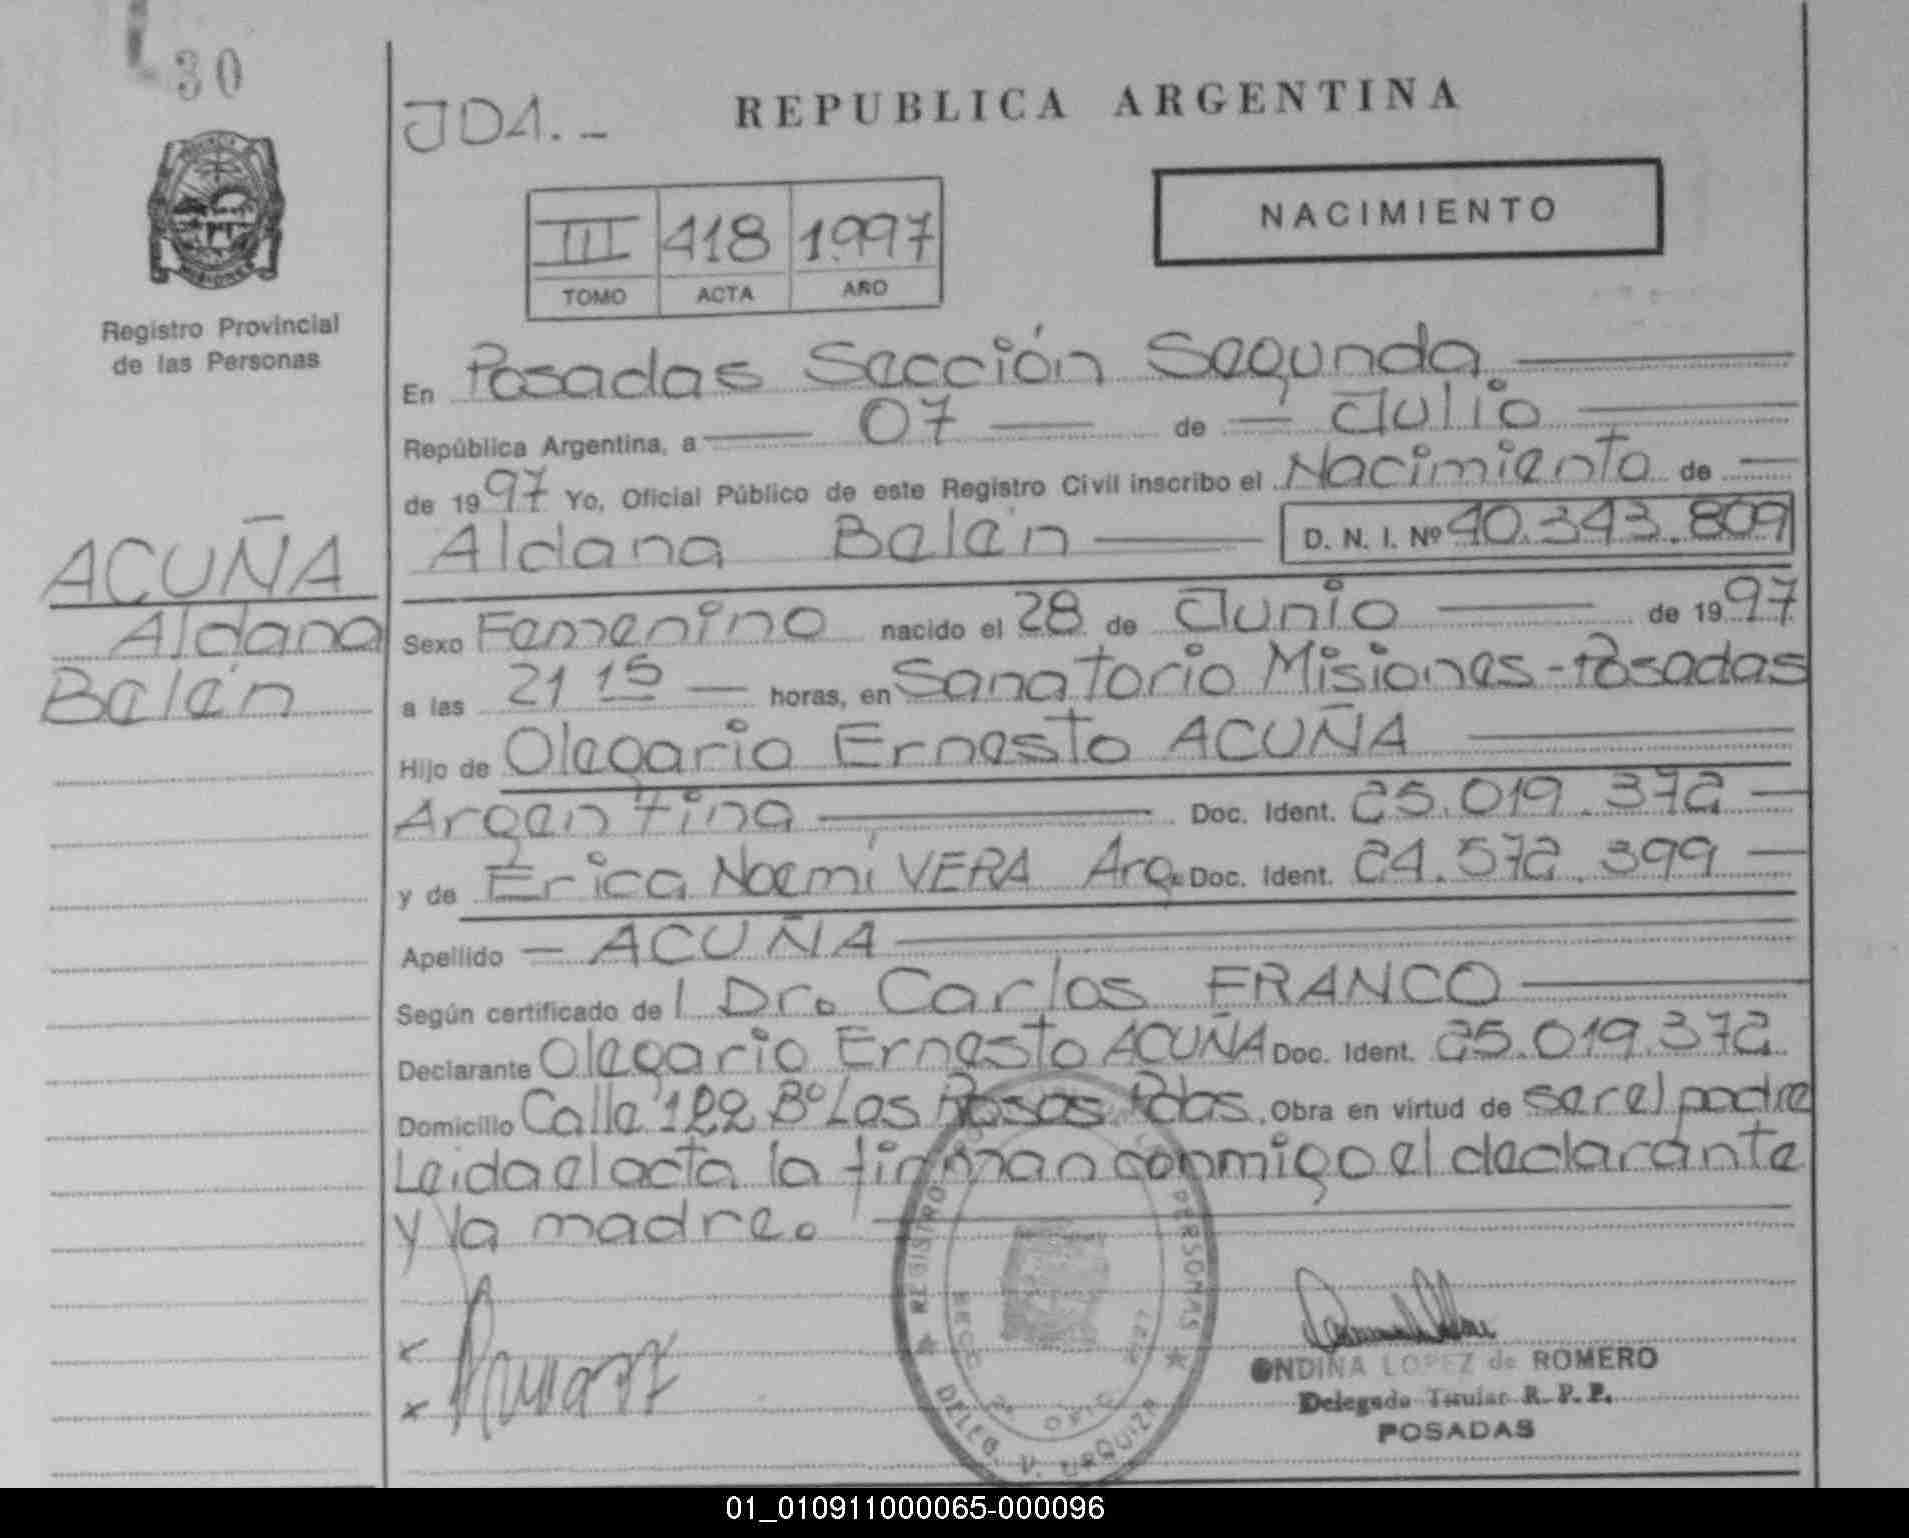 30
JDA.-
REPUBLICA ARGENTINA
III 418 1.997
TOMO ACTA AÑO
NACIMIENTO
Registro Provincial
de las Personas
En Posadas Sección Segunda
República Argentina, a 07 de Julio
de 1997 Yo, Oficial Público de este Registro Civil inscribo el Nacimiento de
Aldana Belén D. N. I. Nº 40.343.809
ACUÑA
Aldana
Belén
Sexo Femenino nacido el 28 de Junio de 1997
a las 21 15 horas, en Sanatorio Misiones-Posadas
Hijo de Olegario Ernesto ACUÑA
Argentina Doc. Ident. 25.019.372
y de Erica Noemí VERA Arg. Doc. Ident. 24.572.399
Apellido ACUÑA
Según certificado del Dr. Carlos FRANCO
Declarante Olegario Ernesto ACUÑA Doc. Ident. 25.019.372
Domicilio Calle 122 Bº Las Rosas Pdas. Obra en virtud de ser el padre
Leida el acta la firman conmigo el declarante
y la madre.
REGISTRO PERSONAS
DELEG. V. URQUIZA
ONDINA LOPEZ de ROMERO
Delegada Titular R. P. P.
POSADAS
01_010911000065-000096